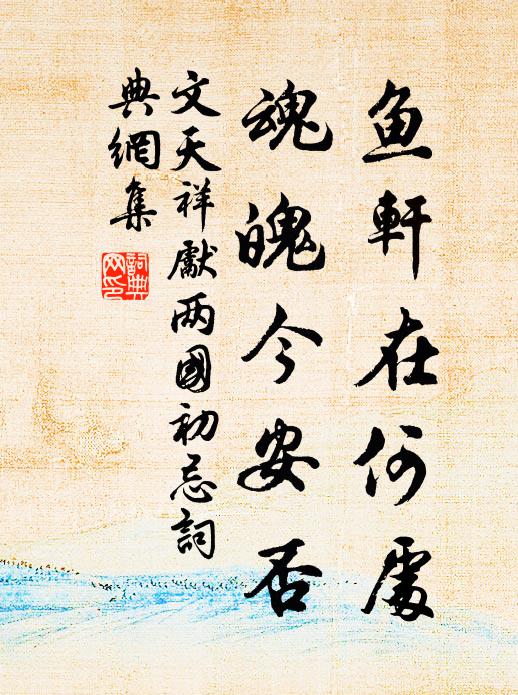 鱼軒在何處
魂魄今安否
文天祥獻两國初忌詞
典網集
詞典网印